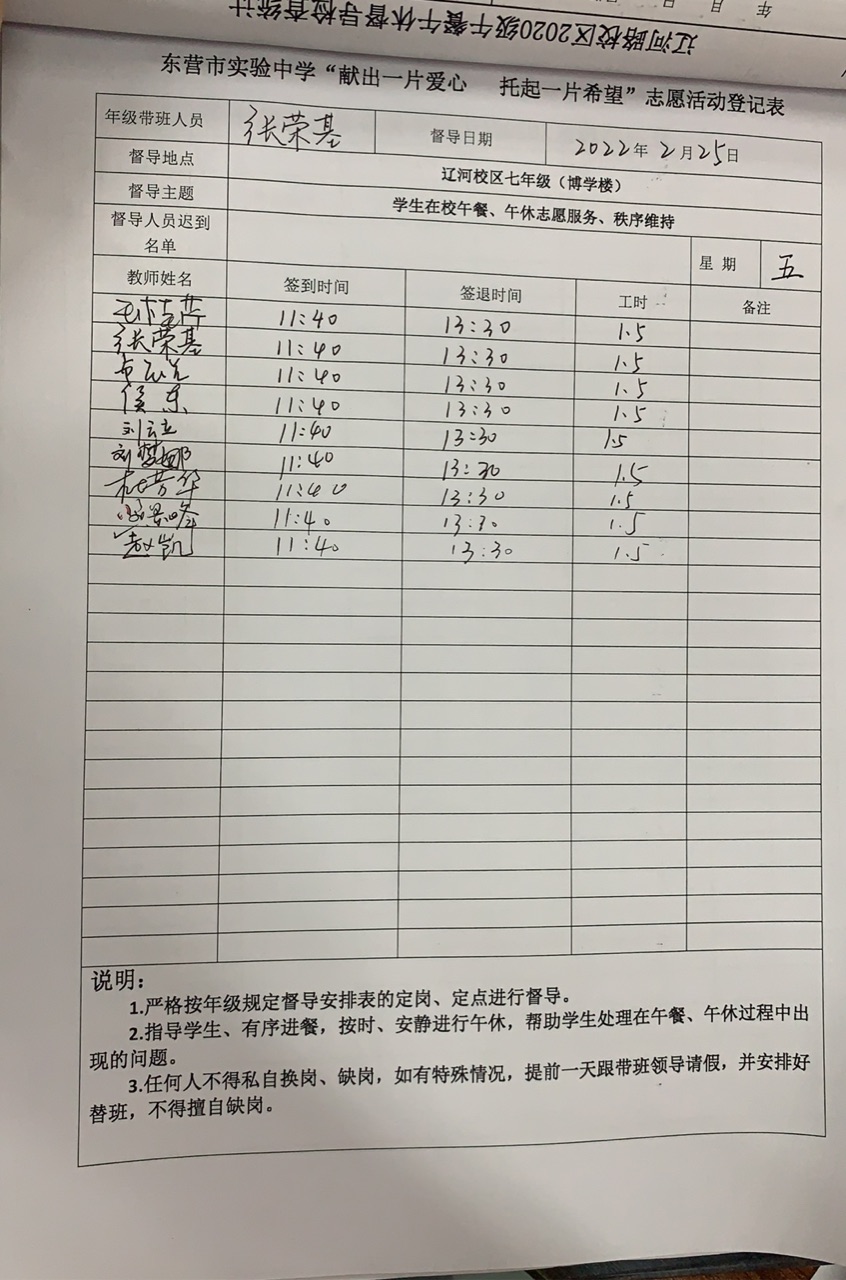 年 月 日
辽河路校区2020级午餐午休督导检查统计
东营市实验中学“献出一片爱心 托起一片希望”志愿活动登记表
年级带班人员 张荣基 督导日期 2022年2月25日
督导地点 辽河校区七年级（博学楼）
督导主题 学生在校午餐、午休志愿服务、秩序维持
督导人员迟到
名单 星期 五
教师姓名 签到时间 签退时间 工时 备注
11:40 13:30 1.5
张荣基 11:40 13:30 1.5
11:40 13:30 1.5
侯东 11:40 13:30 1.5
刘云立 11:40 13:30 1.5
刘梦娜 11:40 13:30 1.5
杜芳华 11:40 13:30 1.5
11:40 13:30 1.5
赵凯 11:40 13:30 1.5
说明：
1.严格按年级规定督导安排表的定岗、定点进行督导。
2.指导学生、有序进餐，按时、安静进行午休，帮助学生处理在午餐、午休过程中出
现的问题。
3.任何人不得私自换岗、缺岗，如有特殊情况，提前一天跟带班领导请假，并安排好
替班，不得擅自缺岗。